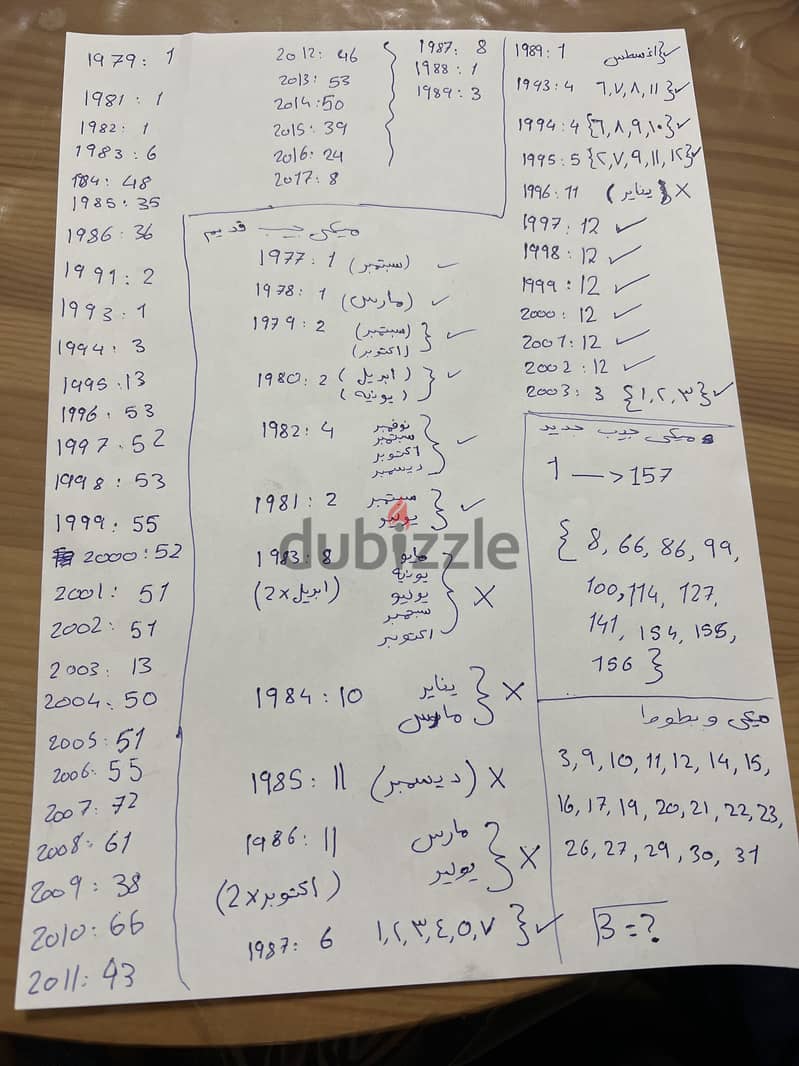 1979: 1
1981: 1
1982: 1
1983: 6
184: 48
1985: 35
1986: 36
1991: 2
1993: 1
1994: 3
1995: 13
1996: 53
1997: 52
1998: 53
1999: 55
2000: 52
2001: 51
2002: 51
2003: 13
2004: 50
2005: 51
2006: 55
2007: 72
2008: 61
2009: 38
2010: 66
2011: 43
2012: 46
2013: 53
2014: 50
2015: 39
2016: 24
2017: 8
1987: 8
1988: 1
1989: 3
ميكي جيب قديم
1977: 1 (سبتمبر) ✓
1978: 1 (مارس) ✓
1979: 2 (سبتمبر) } ✓
(اكتوبر)
1980: 2 (ابريل) } ✓
(يونيه)
1982: 4 نوفمبر } ✓
سبتمبر
اكتوبر
ديسمبر
1981: 2 سبتمبر } ✓
يونيو
1983: 8 مايو } X
(ابريل x 2) يونيه
يوليو
سبتمبر
اكتوبر
1984: 10 يناير } X
مارس
1985: 11 (ديسمبر) X
1986: 11 مارس } X
يوليو
(اكتوبر x 2)
1987: 6 ١,٢,٣,٤,٥,٧ } ✓
1989: 1 اغسطس } ✓
1993: 4 ٦,٧,٨,١١ } ✓
1994: 4 {٦,٨,٩,١٠} ✓
1995: 5 {٢,٧,٩,١١,١٢} ✓
1996: 11 (يناير) X
1997: 12 ✓
1998: 12 ✓
1999: 12 ✓
2000: 12 ✓
2001: 12 ✓
2002: 12 ✓
2003: 3 {١,٢,٣} ✓
ميكي جيب جديد
1 —> 157
{ 8, 66, 86, 99,
100, 114, 127,
141, 154, 155,
156 }
ميكي و بطوط
3, 9, 10, 11, 12, 14, 15,
16, 17, 19, 20, 21, 22, 23,
26, 27, 29, 30, 31
B = ?
dubizzle